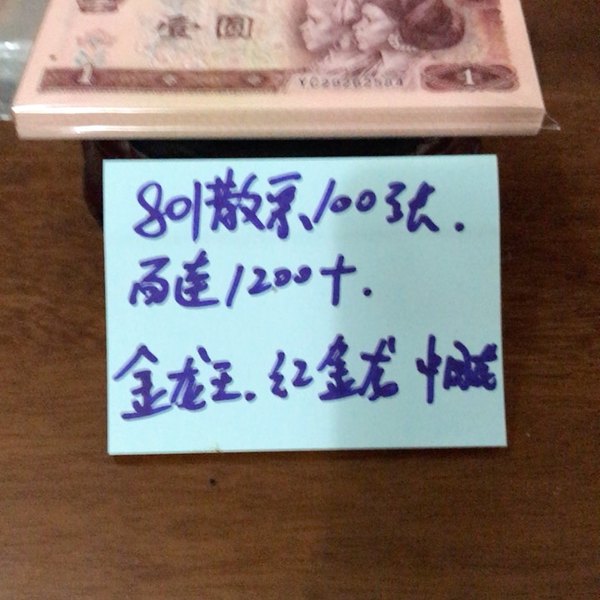 壹圆
1 YC29262984 1
801散票、100张.
百连1200十.
金龙王.红金龙